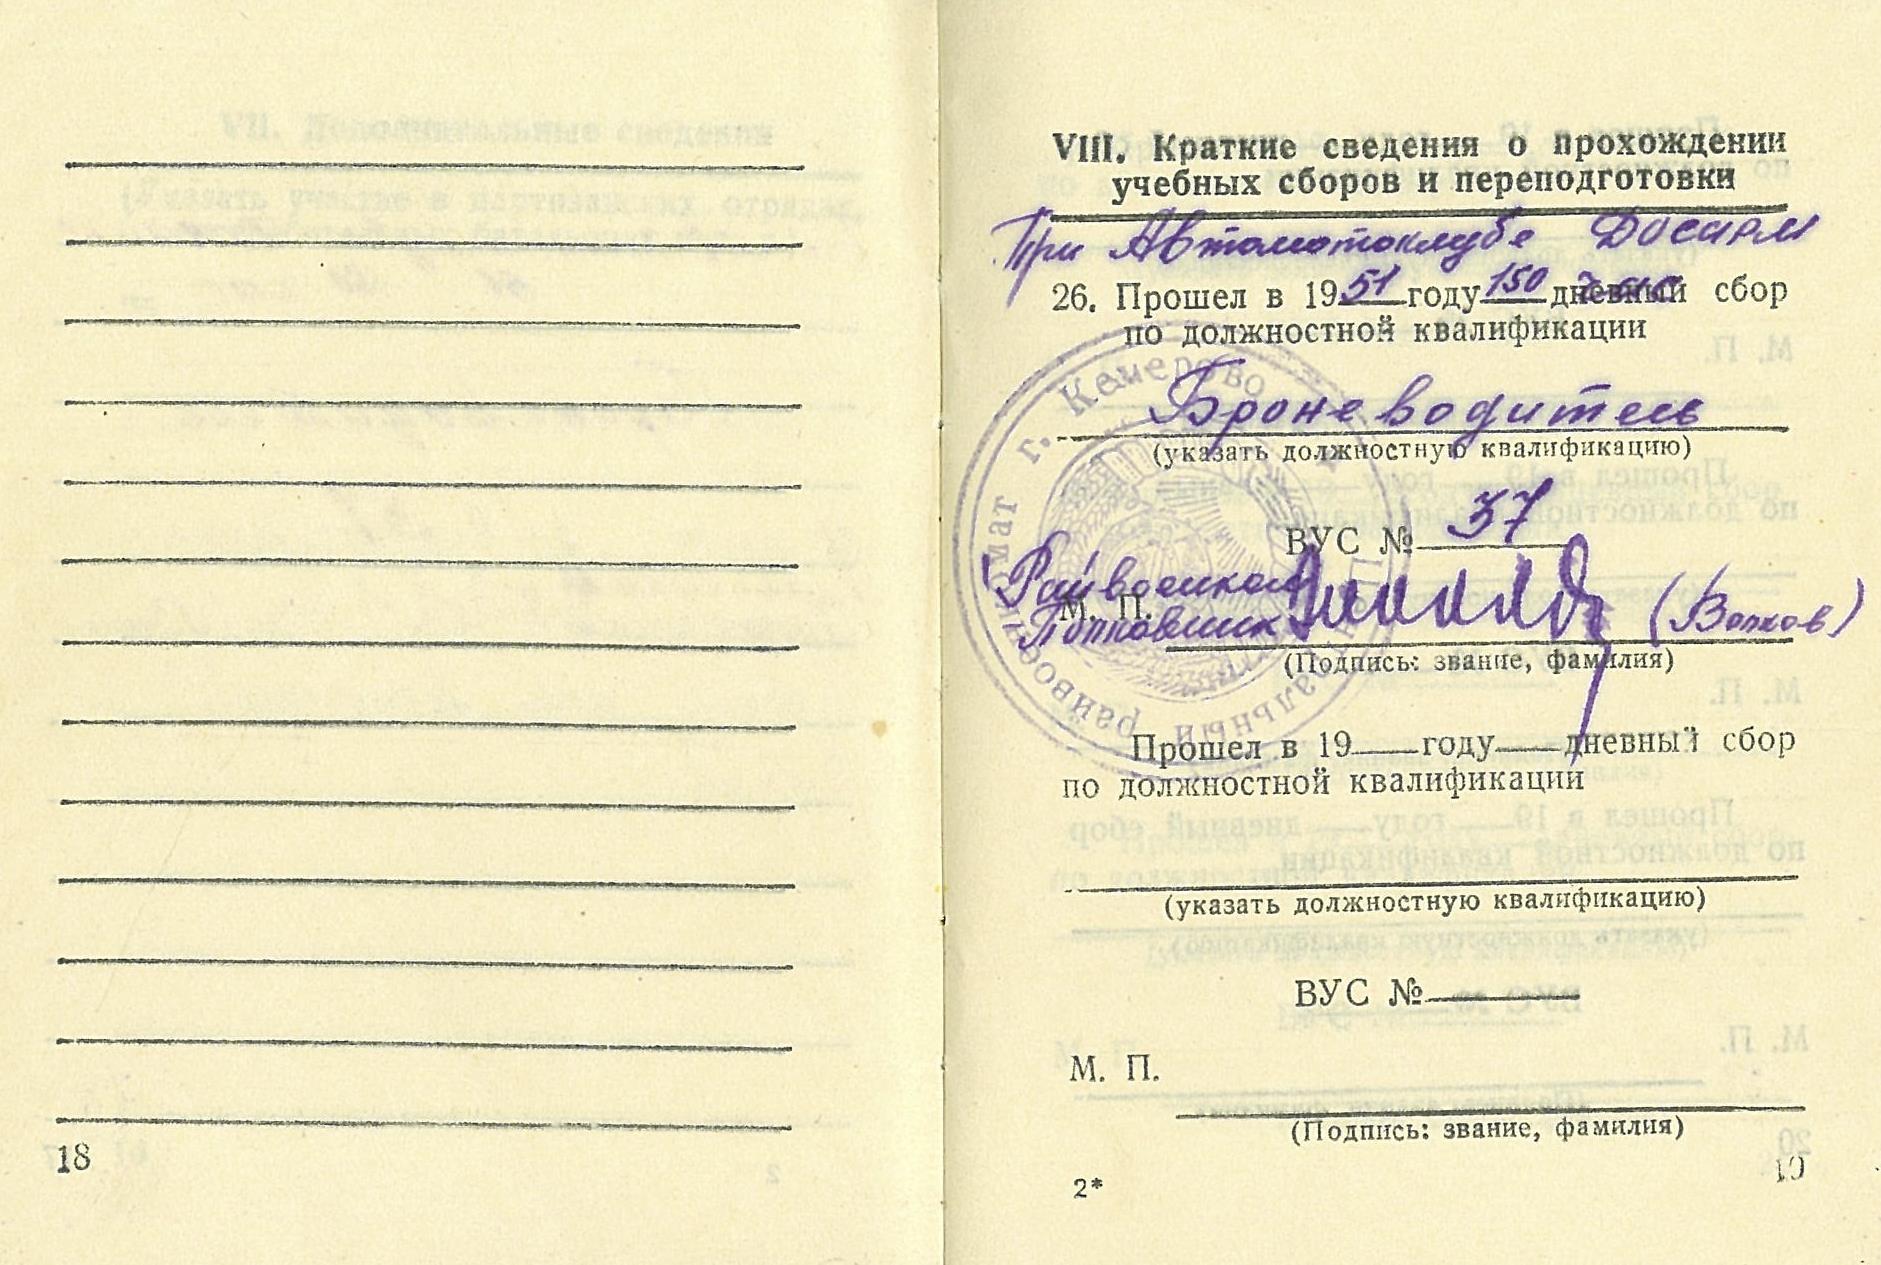 18
VIII. Краткие сведения о прохождении
учебных сборов и переподготовки
При Автомотоклубе Досарм
26. Прошел в 1951 году 150 дневный час сбор
по должностной квалификации
Броневодитель
(указать должностную квалификацию)
ВУС № 37
Райвоенком
М. П. Полковник (Волков)
(Подпись: звание, фамилия)
г. Кемерово
райвоенкомат
Прошел в 19 году дневный сбор
по должностной квалификации
(указать должностную квалификацию)
ВУС №
М. П.
(Подпись: звание, фамилия)
2*
19